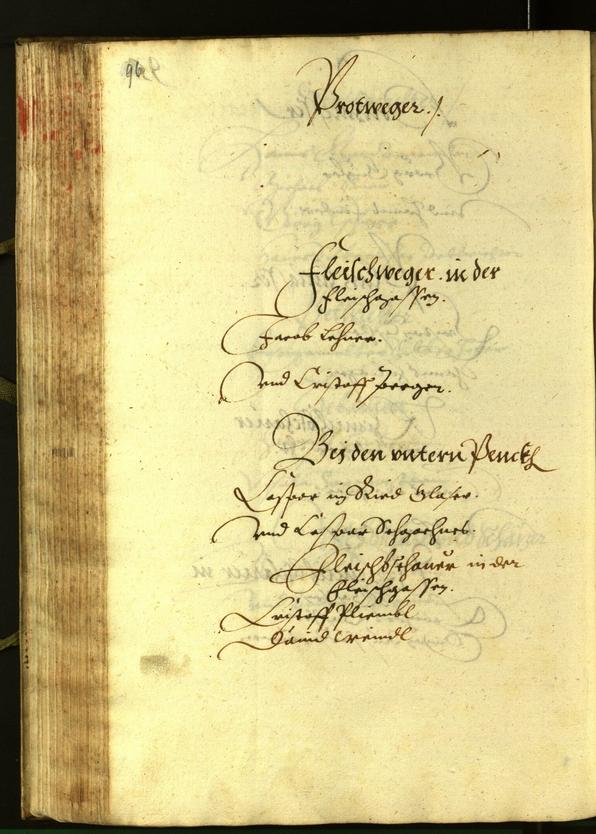 96
Protweger ./.
Fleischweger in der
Fleischgassen.
Jacob Lehner.
vnd Cristoff
Bei den vntern Penckh
Caspar im Ried Glaser.
vnd Caspar
Fleischschauer in der
Fleischgassen.
Cristoff Pliembl
Dauid